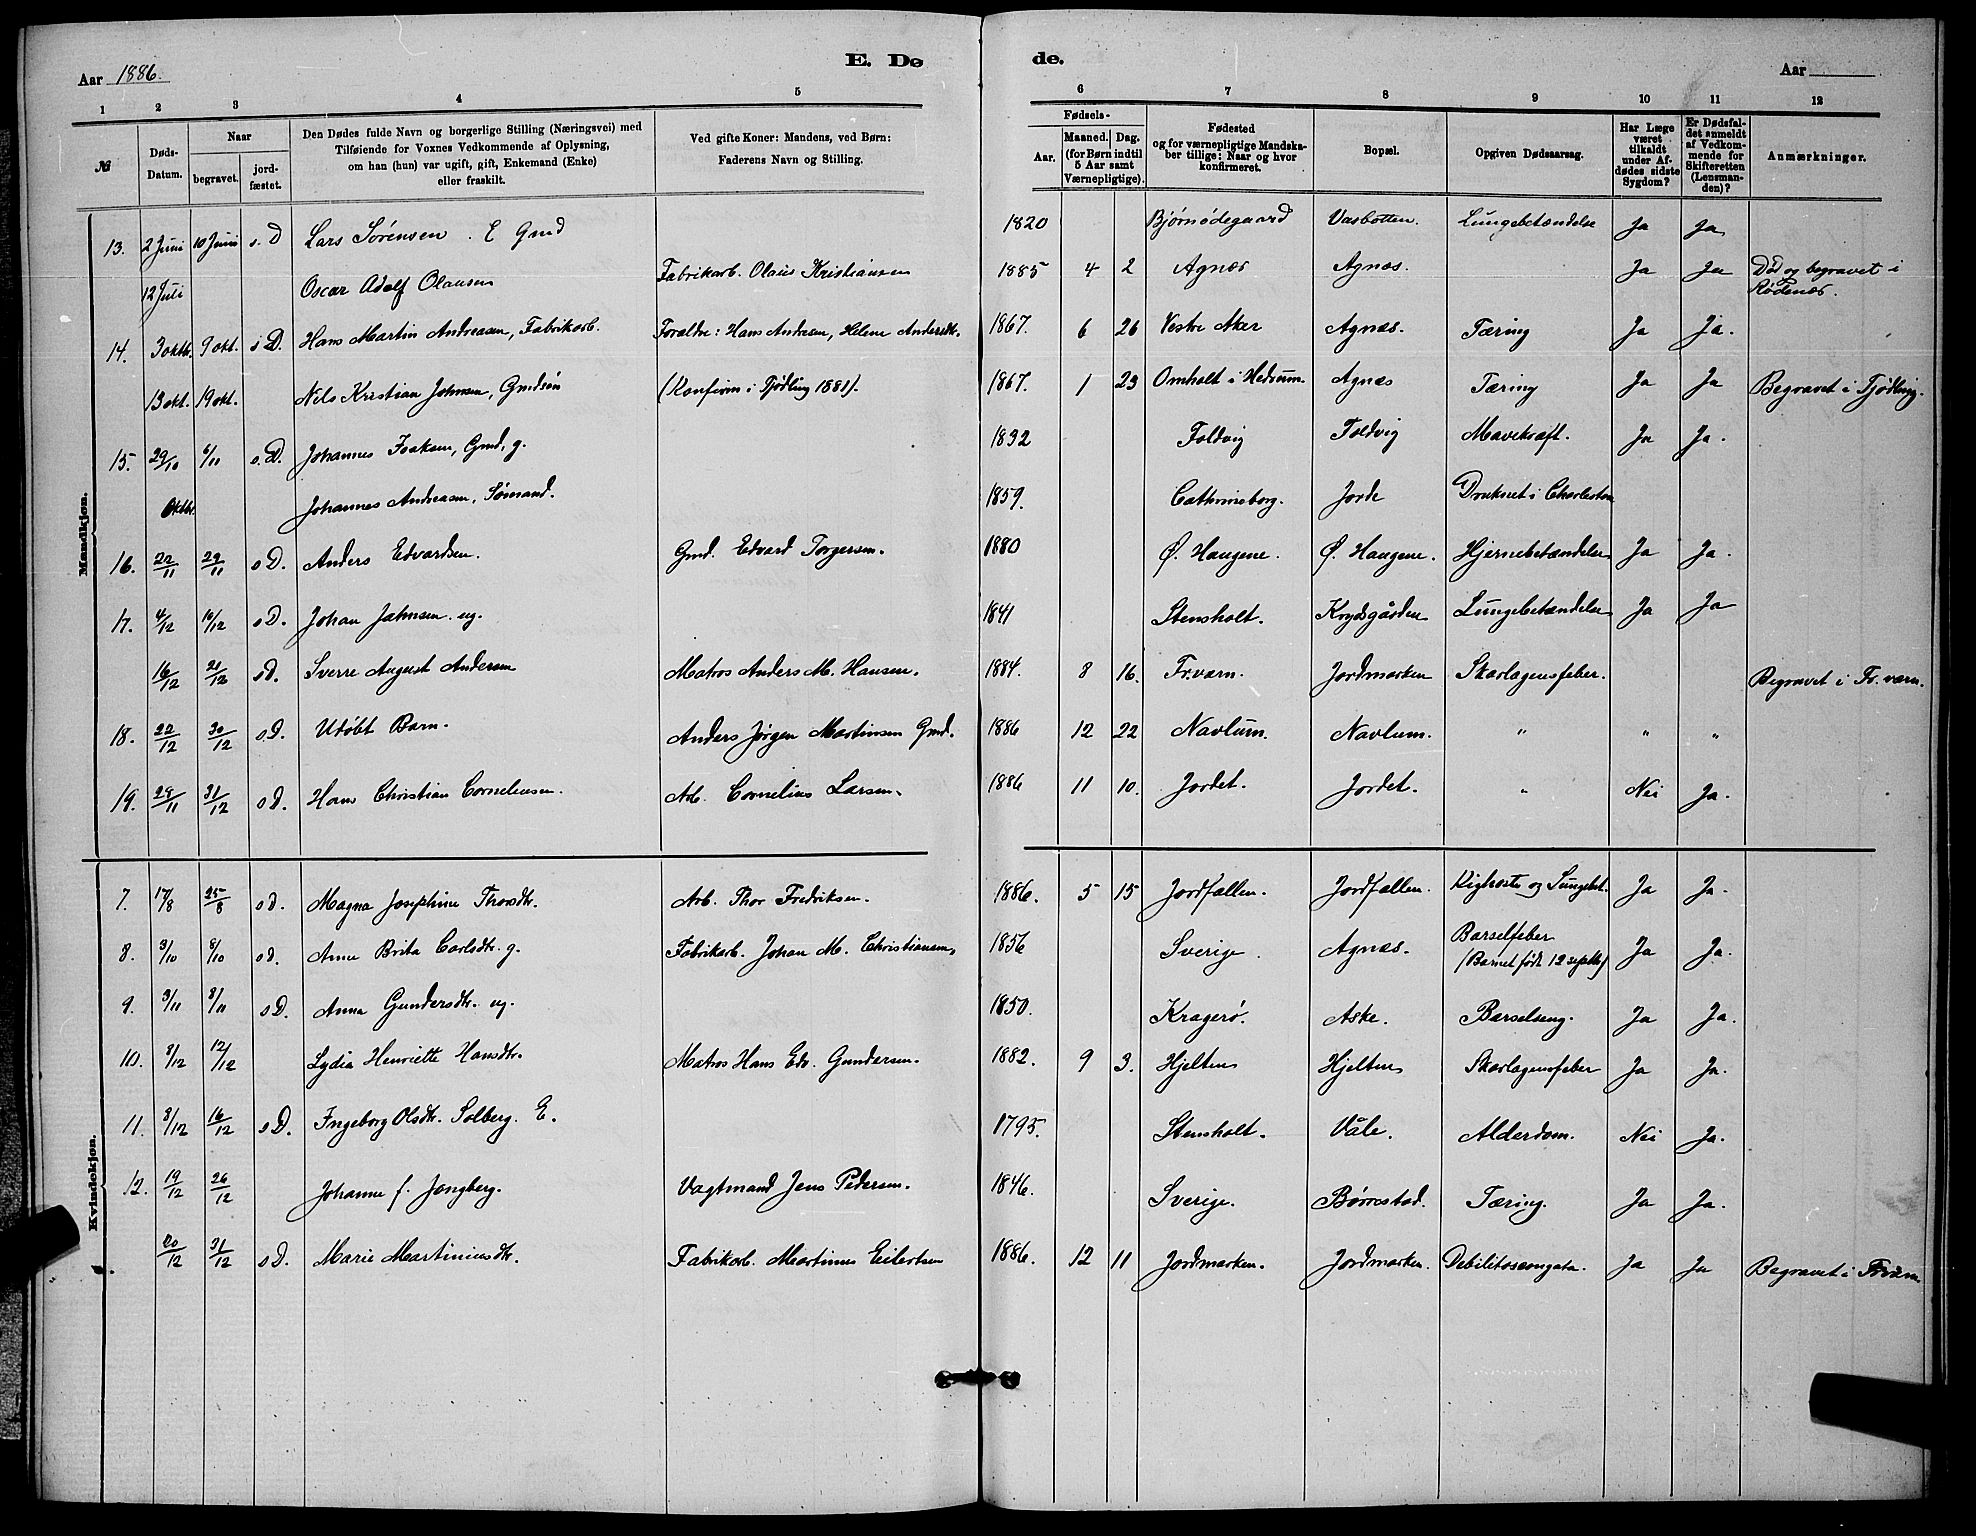 Aar 1886. E. Dø
de. Aar
1 2 3 4 5
6 7 8 9 10 11 12
№ Døds-Datum. Naar begravet. jordfæstet. Den Dødes fulde Navn og borgerlige Stilling (Næringsvei) med Tilføiende for Voxnes Vedkommende af Oplysning, om han (hun) var ugift, gift, Enkemand (Enke) eller fraskilt. Ved gifte Koner: Mandens, ved Børn: Faderens Navn og Stilling.
Fødsels- Aar. Maaned. Dag. (for Børn indtil 5 Aar samt Værnepligtige). Fødested og for værnepligtige Mandskaber tillige: Naar og hvor konfirmeret. Bopæl. Opgiven Dødsaarsag. Har Læge været tilkaldt under Afdødes sidste Sygdom? Er Dødsfaldet anmeldt af Vedkommende for Skifteretten (Lensmanden)? Anmærkninger.
Mandkjøn.
13. 2 Juni 10 Juni s. D Lars Sørensen. E Gmd 1820 Bjørnødegaard Vasbotten. Lungebetændelse Ja Ja
12 Juli Oscar Adolf Olausen Fabrikarb. Olaus Kristiansen 1885 4 2 Agnæs Agnæs. Ja Ja Død og begravet i Rødenæs.
14. 3 oktb. 9 okt. s D. Hans Martin Andreasen, Fabrikarb. Forældre: Hans Andresen, Helene Andersdtr. 1867. 6 26 Vestre Aker Agnæs. Tæring Ja Ja.
13 okt. 19 okt. Nels Kristian Johnsen, Gmdsøn (Konfirm i Tjødling 1881). 1867. 1 23 Omholt i Hedrum. Agnæs Tæring Ja Ja Begravet i Tjødling.
15. 29/10 6/11 s. D. Johannes Isaksen, Gmd, g. 1832 Foldvig Foldvig Mavekræft. Ja Ja.
Oktbr. Johannes Andreasen, Sømand. 1859. Cathrineborg. Jorde Druknet i Charleston
16. 22/11 29/11 s D. Anders Edvardsen. Gmd. Edvard Torgersen. 1880 Ø. Haugene. Ø. Haugene. Hjernebetændelse Ja Ja.
17. 4/12 10/12 s D. Johan Jahnsen. ug. 1841 Stensholt. Krydsgården Lungebetændelse Ja Ja
16/12 21/12 s D. Sverre August Andersen Matros Anders M. Hansen. 1884. 8 16. Fr.værn. Jordmarken Skarlagensfeber. Begravet i Fr. værn.
18. 22/12 30/12 s. D. Udøbt Barn. Anders Jørgen Martinsen Gmd. 1886 12 22 Navlum. Navlum. " " "
19. 28/11 31/12 s d. Hans Christian Corneliusen. Arb. Cornelius Larsen. 1886 11 10. Jordet. Jordet. " Nei Ja.
Kvindekjøn.
7. 17/8 25/8 s d. Magna Josephine Thorsdtr. Arb. Thor Fredriksen. 1886. 5 15 Jordfallen. Jordfallen. Kighoste og Lungebet. Ja Ja.
8. 3/10 8/10 s d. Anne Brita Carlsdtr. g. Fabrikarb. Johan M. Christiansen. 1856 Sverige. Agnæs. Barselfeber (Barnet født 12 septbr) Ja Ja.
9. 3/11 8/11 s D. Anna Gundersdtr. ug. 1850. Kragerø. Aske. Barselseng. Ja Ja.
10. 8/12 12/12 Lydia Henriette Hansdtr. Matros Hans Edv. Gundersen. 1882. 9 3. Hjelten Hjelten Skarlagensfeber Ja Ja.
11. 8/12 16/12 s D. Ingeborg Olsdtr. Solberg. E. 1795. Stensholt. Våle. Alderdom. Nei Ja.
12. 19/12 26/12 Johanne f. Jongberg. Vagtmand Jens Pedersen. 1846. Sverige. Børrestad. Tæring. Ja Ja.
20/12 31/12 s D. Marie Martiniusdtr. Fabrikarb. Martinus Eilertsen 1886. 12 11 Jordmarken. Jordmarken. Debilitas congata. Ja Ja Begravet i Frværn